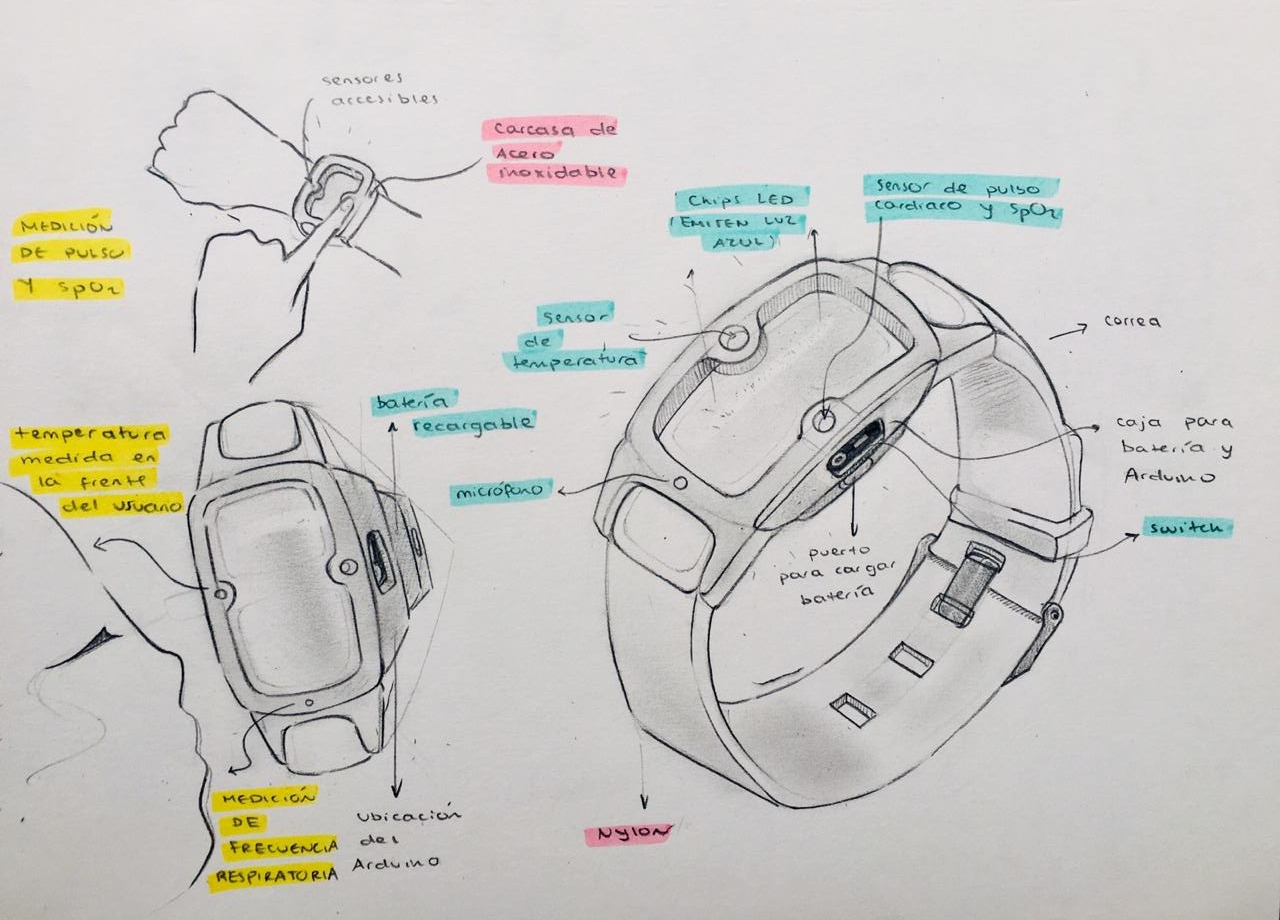 sensores
accesibles
Carcasa de
Acero
inoxidable
MEDICIÓN
DE PULSO
Y SpO2
Chips LED
(EMITEN LUZ
AZUL)
Sensor de pulso
cardiaco y SpO2
sensor
de
temperatura
correa
batería
recargable
temperatura
medida en
la frente
del usuario
micrófono
caja para
batería y
Arduino
switch
puerto
para cargar
batería
MEDICIÓN
DE
FRECUENCIA
RESPIRATORIA
Ubicación
del
Arduino
Nylon